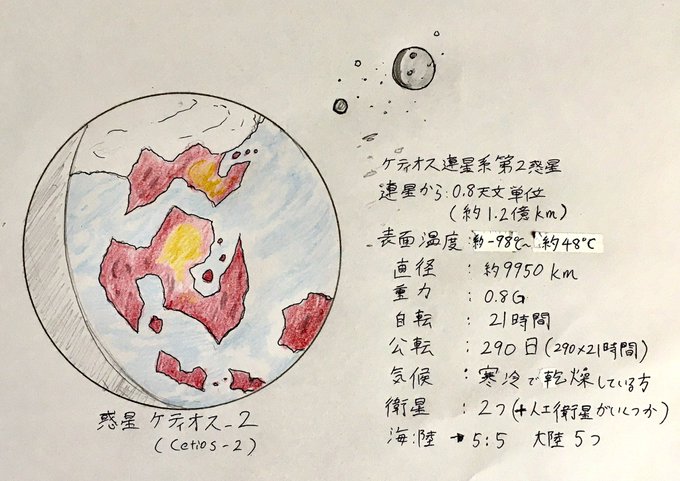 惑星 ケティオス_2
(Cetios-2)
ケティオス連星系第2惑星
連星から:0.8天文単位
(約1.2億km)
表面温度:約-98℃~約48℃
直径:約9950km
重力:0.8G
自転:21時間
公転:290日(290×21時間)
気候:寒冷で乾燥している方
衛星:2つ(+人工衛星がいくつか)
海:陸→5:5 大陸5つ